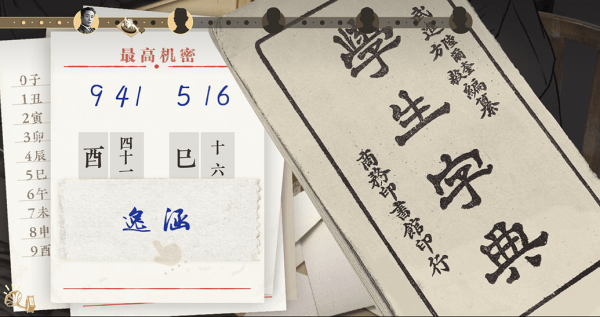 最高机密
941 516
酉 四十一 巳 十六
逸涵
0子
1丑
2寅
3卯
4辰
5巳
6午
7未
8申
9酉
學生字典
武進陸爾奎
方毅編纂
商務印書館印行